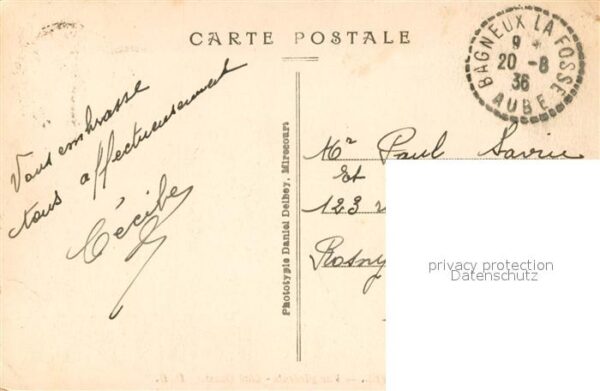 CARTE POSTALE
BAGNEUX LA FOSSE
9
20 - 8
36
AUBE
Vous embrasse
tous affectueusement
Cécile
Phototypie Daniel Delbey, Mirecourt
Mr Paul
Et
123
Rosny
privacy protection
Datenschutz